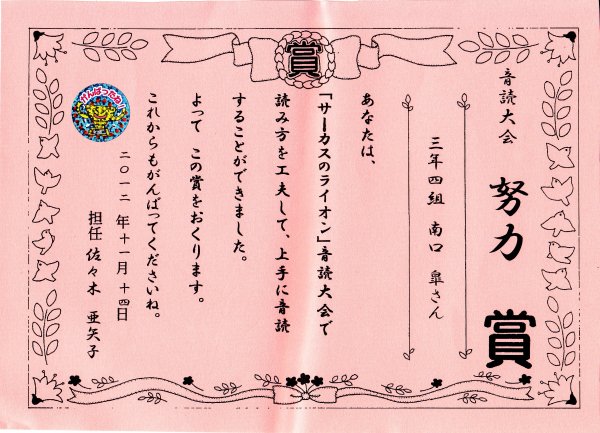 賞
音読大会
努力賞
三年四組 南口 皐さん
あなたは、
「サーカスのライオン」音読大会で
読み方を工夫して、上手に音読
することができました。
よって この賞をおくります。
これからもがんばってくださいね。
二〇一二年十一月十四日
担任 佐々木 亜矢子
がんばったね!